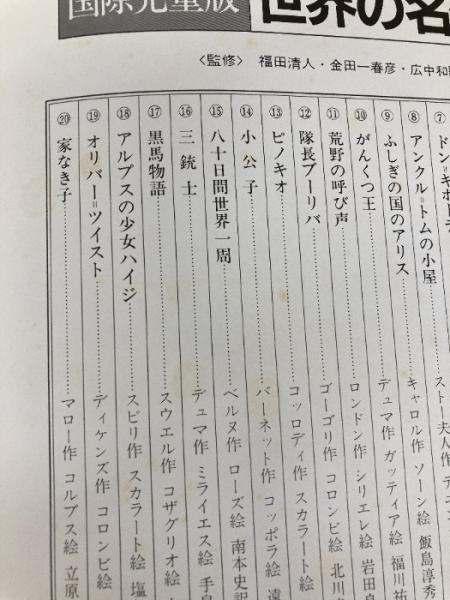 国際児童版 世界の名
〈監修〉 福田清人・金田一春彦・広中和
⑦ ドン=キホーテ
⑧ アンクル=トムの小屋……ストー夫人作
⑨ ふしぎの国のアリス……キャロル作 ソーン絵 飯島淳秀
⑩ がんくつ王……デュマ作 ガッティア絵 福川祐
⑪ 荒野の呼び声……ロンドン作 シリエレ絵 岩田
⑫ 隊長ブーリバ……ゴーゴリ作 コロンビ絵 北川
⑬ ピノキオ……コッロディ作 スカラート絵
⑭ 小公子……バーネット作 コッポラ絵 遠
⑮ 八十日間世界一周……ベルヌ作 ローズ絵 南本史訳
⑯ 三銃士……デュマ作 ミライエス絵 手
⑰ 黒馬物語……スウエル作 コザグリオ絵
⑱ アルプスの少女ハイジ……スピリ作 スカラート絵 塩
⑲ オリバー=ツイスト……ディケンズ作 コロンビ絵
⑳ 家なき子……マロー作 コルブス絵 立原